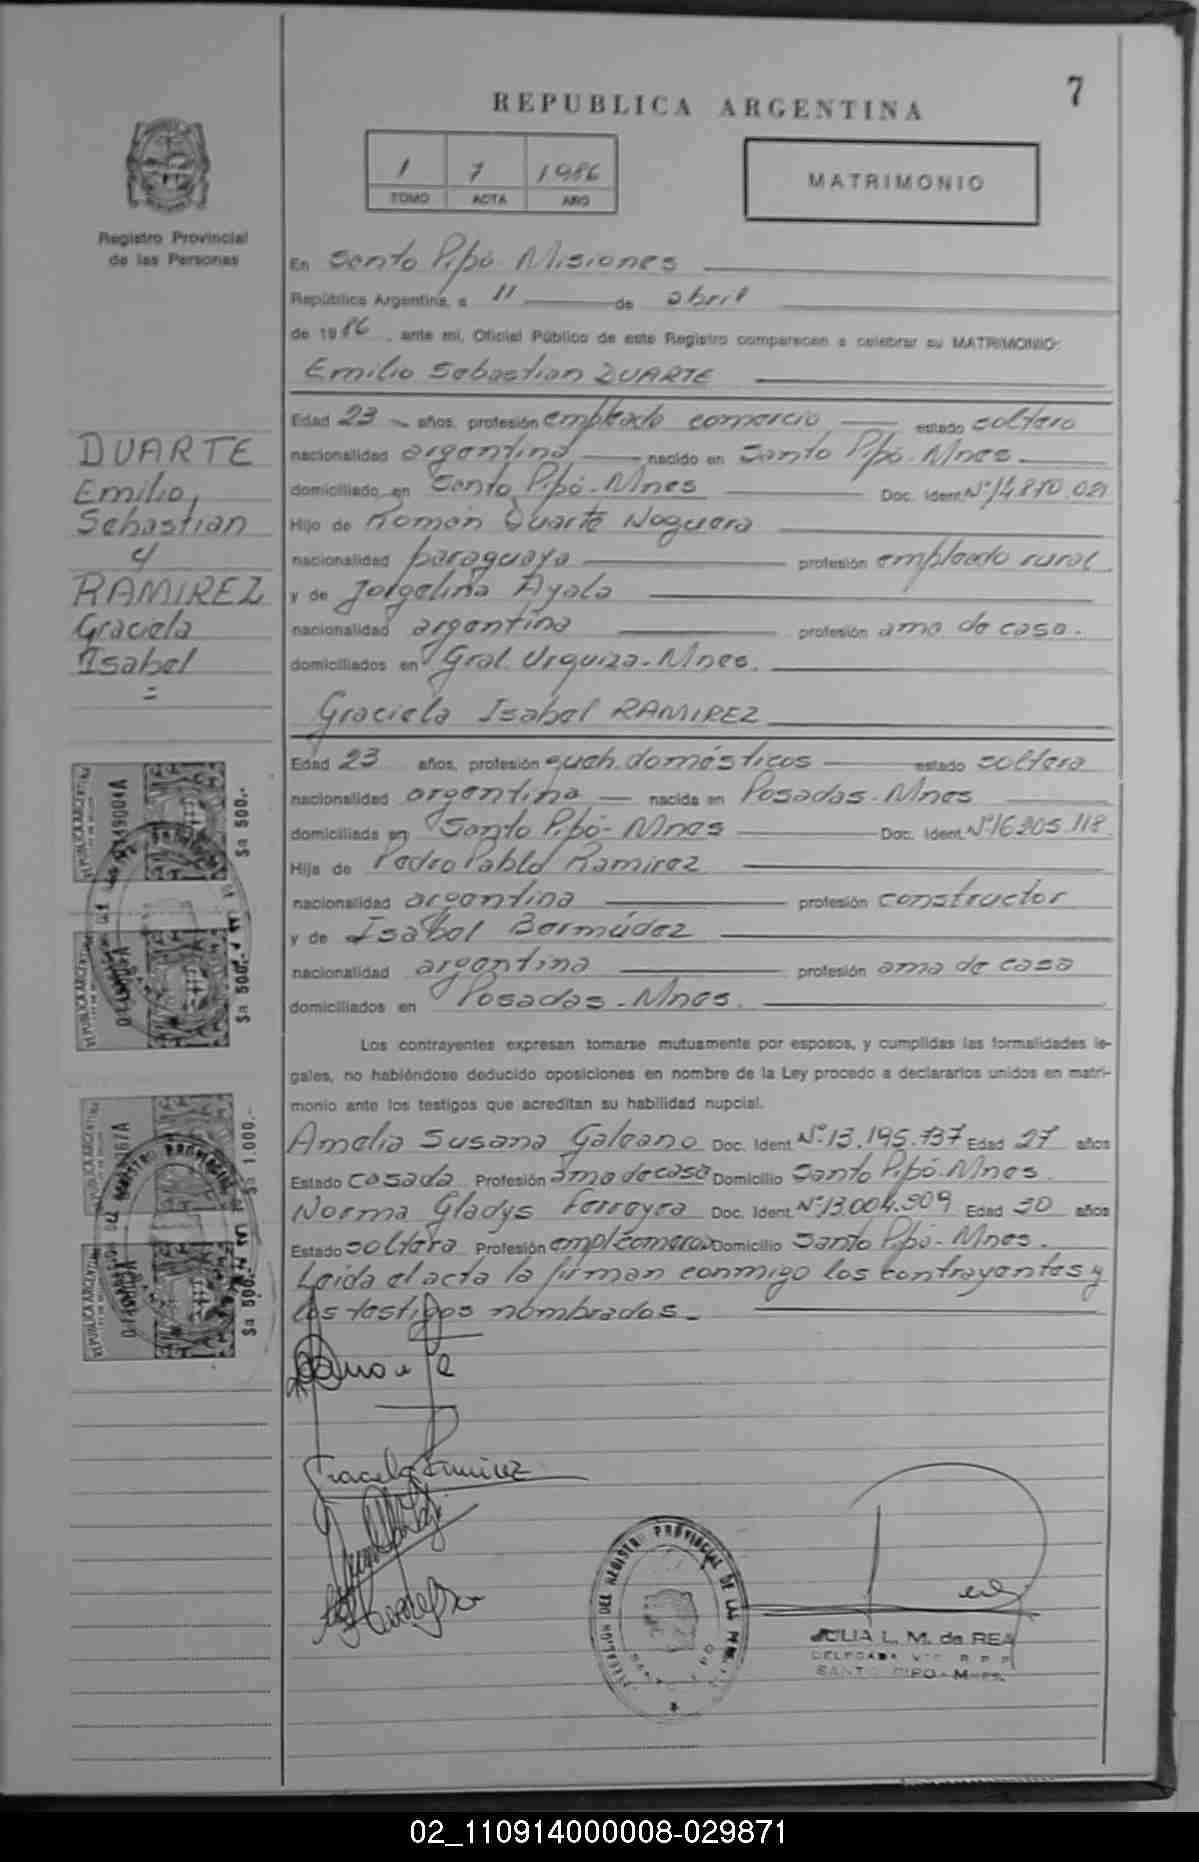 7
REPUBLICA ARGENTINA
1 7 1986
TOMO ACTA AÑO
MATRIMONIO
Registro Provincial
de las Personas
En Santo Pipó Misiones
República Argentina, a 11 de abril
de 1986, ante mi, Oficial Público de este Registro comparecen a celebrar su MATRIMONIO:
Emilio Sebastian DUARTE
Edad 23 años, profesión empleado comercio estado soltero
nacionalidad argentina nacido en Santo Pipó-Mnes.
domiciliado en Santo Pipó-Mnes Doc. Ident. Nº 14.870.021
Hijo de Román Duarte Noguera
nacionalidad paraguaya profesión empleado rural.
y de Jorgelina Ayala
nacionalidad argentina profesión ama de casa.
domiciliados en Gral. Urquiza-Mnes.
DUARTE
Emilio,
Sebastian
c/
RAMIREZ
Graciela
Isabel
=
Graciela Isabel RAMIREZ
Edad 23 años, profesión queh. domésticos estado soltera
nacionalidad argentina nacida en Posadas-Mnes
domiciliada en Santo Pipó-Mnes Doc. Ident. Nº 16.205.118
Hija de Pedro Pablo Ramirez
nacionalidad argentina profesión constructor
y de Isabel Bermúdez
nacionalidad argentina profesión ama de casa
domiciliados en Posadas-Mnes.
Los contrayentes expresan tomarse mutuamente por esposos, y cumplidas las formalidades le-
gales, no habiéndose deducido oposiciones en nombre de la Ley procedo a declararlos unidos en matri-
monio ante los testigos que acreditan su habilidad nupcial.
Amelia Susana Galeano Doc. Ident. Nº 13.195.737 Edad 27 años
Estado casada Profesión ama de casa Domicilio Santo Pipó-Mnes.
Norma Gladys Ferreyra Doc. Ident. Nº 13.004.909 Edad 30 años
Estado soltera Profesión Domicilio Santo Pipó-Mnes.
Leída el acta la firman conmigo los contrayentes y
los testigos nombrados.-
REPUBLICA ARGENTINA
$a 500.-
$a 500.-
$a 1.000.-
$a 500.-
Graciela Ramirez
DEL REGISTRO PROVINCIAL DE LAS
JULIA L. M. de REA
DELEGADA
SANTO PIPO - Mnes.
02_110914000008-029871